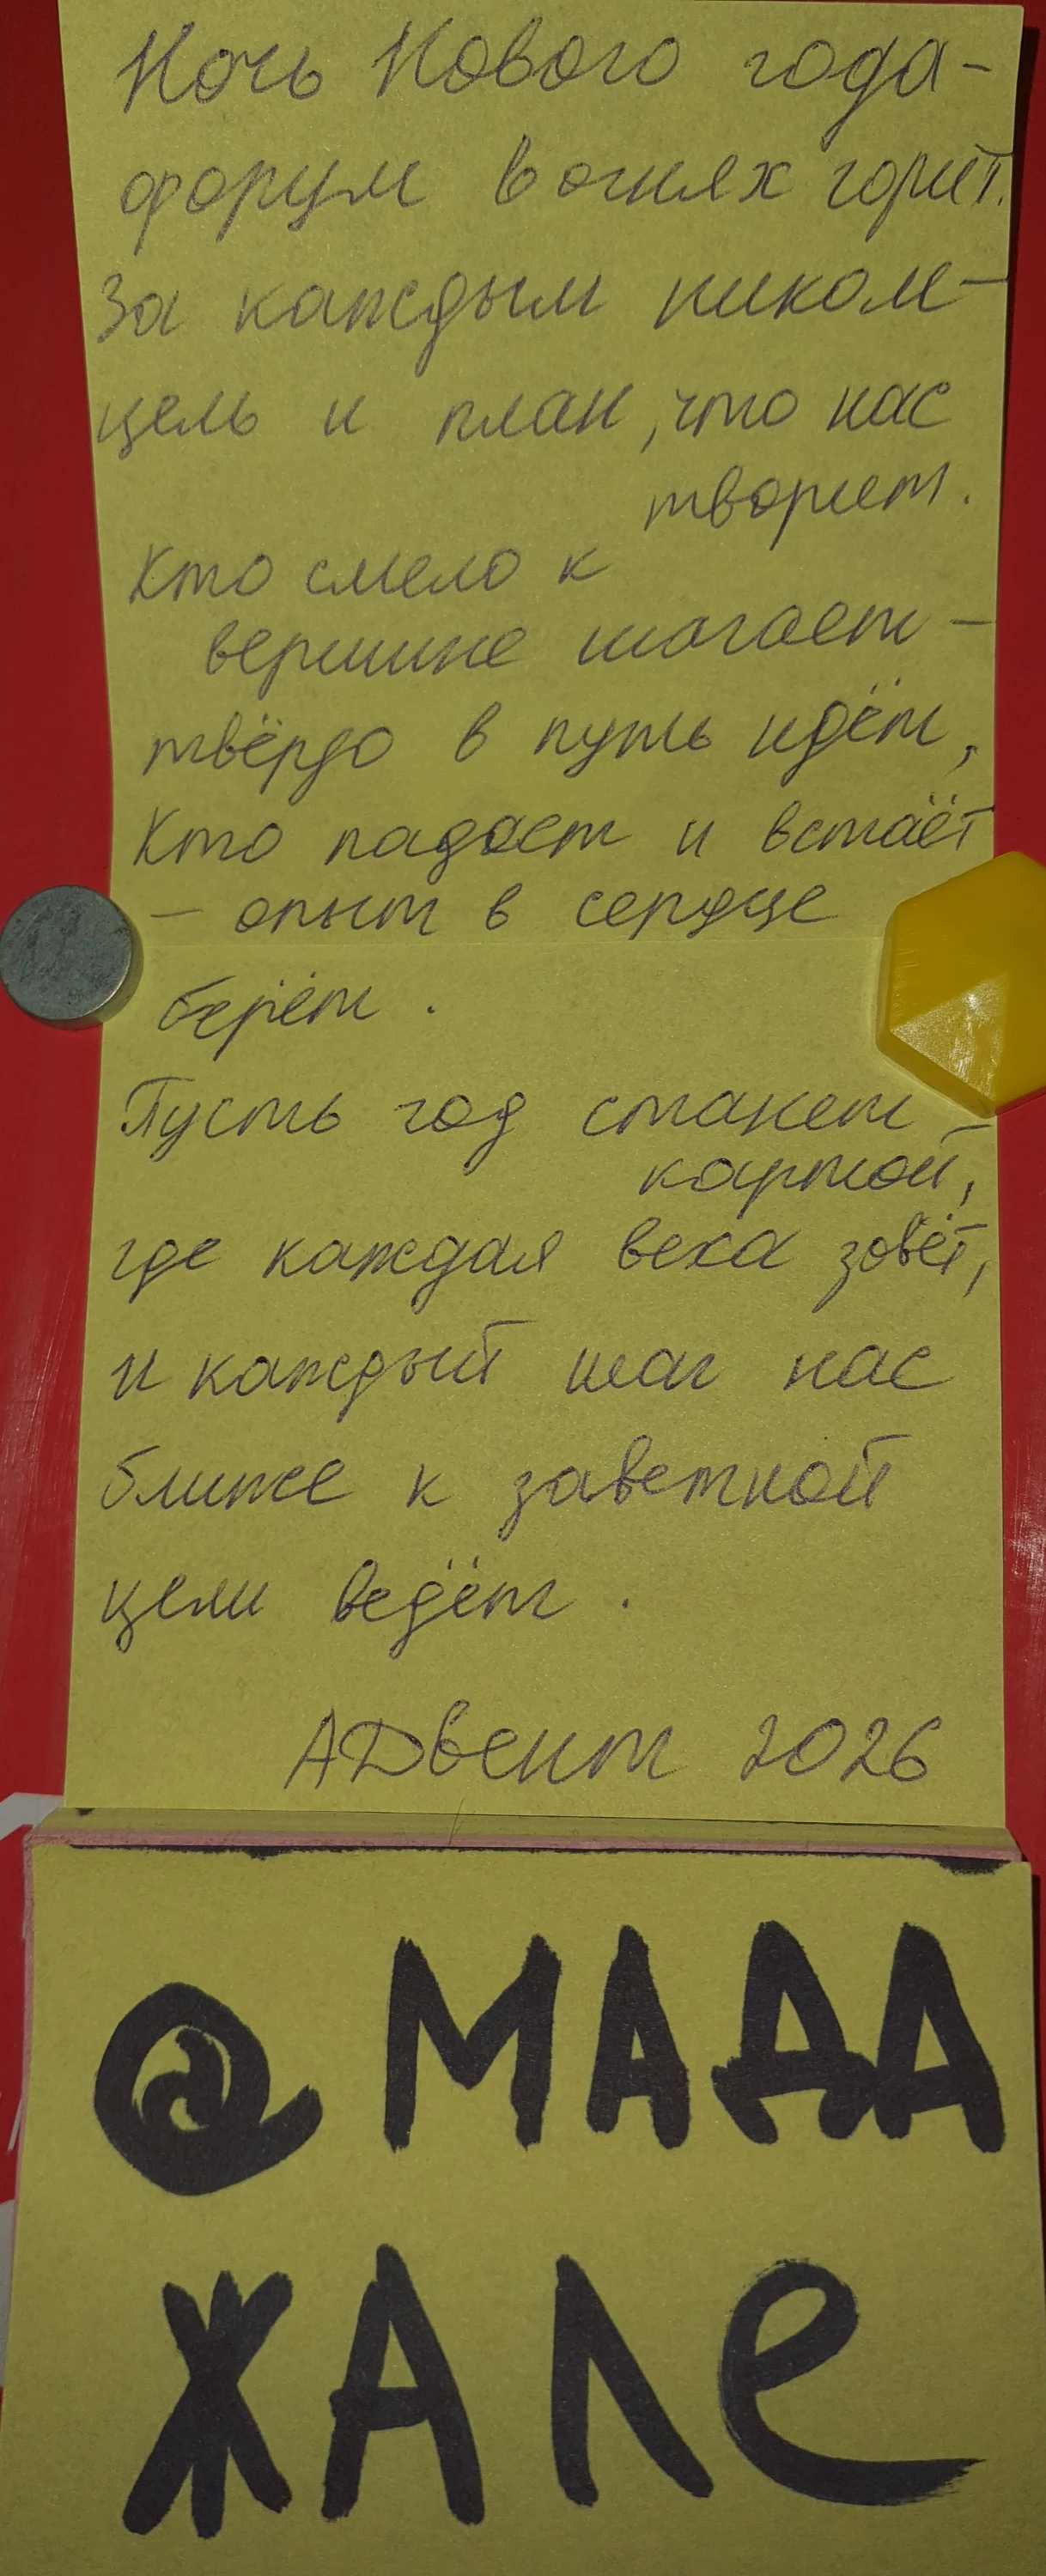 Ночь Нового года-
форум в огнях горит.
За каждым ником-
цель и план, что нас
творит.
Кто смело к
вершине шагает-
твёрдо в путь идёт,
Кто падает и встаёт
- опыт в сердце
берёт.
Пусть год станет-
картой,
где каждая веха зовёт,
и каждый шаг нас
ближе к заветной
цели ведёт.
АДвент 2026
@ МАДА
ЖАЛе